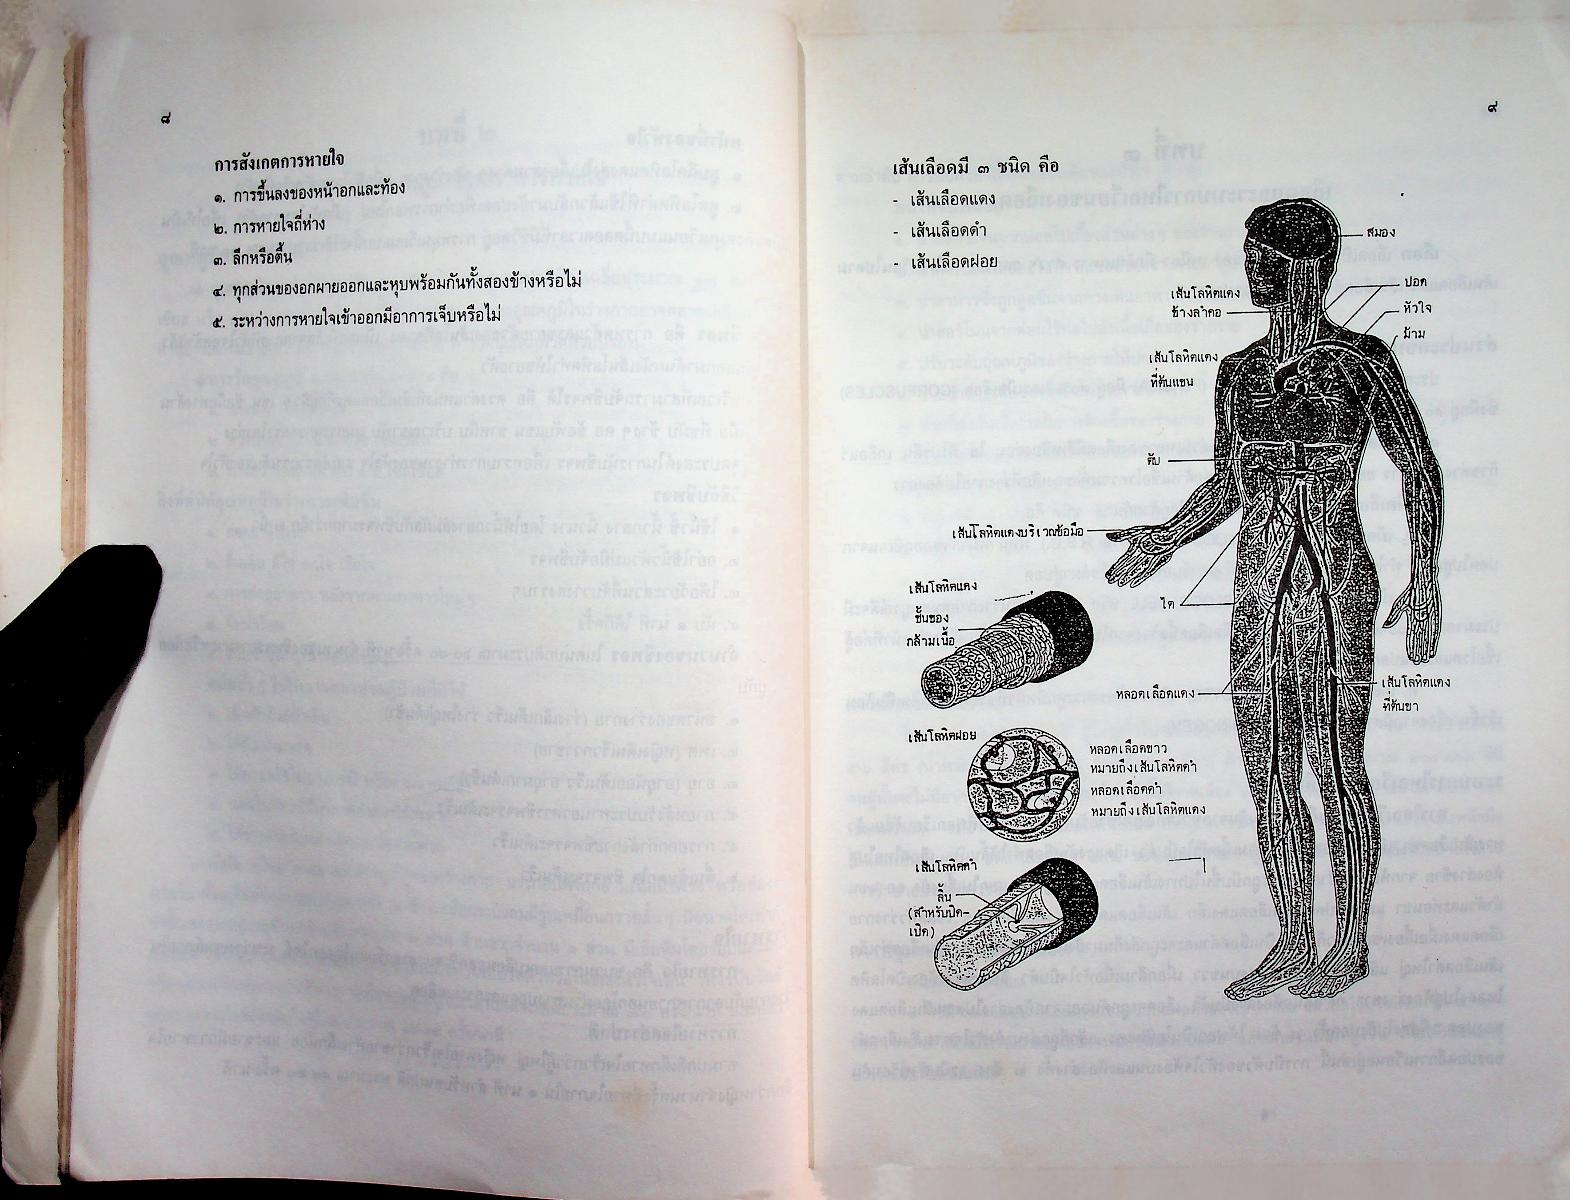 ๘
การสังเกตการหายใจ
๑. การขึ้นลงของหน้าอกและท้อง
๒. การหายใจถี่ห่าง
๓. ลึกหรือตื้น
๔. ทุกส่วนของอกผายออกและหุบพร้อมกันทั้งสองข้างหรือไม่
๕. ระหว่างการหายใจเข้าออกมีอาการเจ็บหรือไม่
๙
เส้นเลือดมี ๓ ชนิด คือ
- เส้นเลือดแดง
- เส้นเลือดดำ
- เส้นเลือดฝอย
สมอง
ปอด
หัวใจ
ม้าม
เส้นโลหิตแดง
ข้างลำคอ
เส้นโลหิตแดง
ที่ต้นแขน
ตับ
เส้นโลหิตแดงบริเวณข้อมือ
ไต
หลอดเลือดแดง
เส้นโลหิตแดง
ที่ต้นขา
เส้นโลหิตแดง
ชั้นของ
กล้ามเนื้อ
เส้นโลหิตฝอย
หลอดเลือดขาว
หมายถึงเส้นโลหิตดำ
หลอดเลือดดำ
หมายถึงเส้นโลหิตแดง
เส้นโลหิตดำ
ลิ้น
(สำหรับปิด-
เปิด)